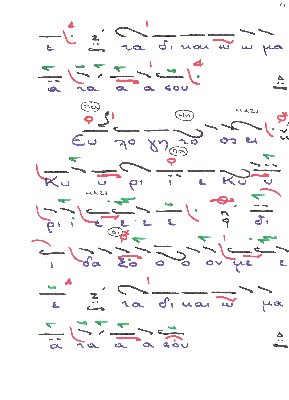 ε τα δι και ω ω μα
α τα α α σου
Ευ λο γη το ος ει
Κυ υ ρι ι ε Κυ υ
ρι ι ε ε ε δι
ι δα ξο ο ο ον με ε
ε τα δι και ω μα
α τα α α σου